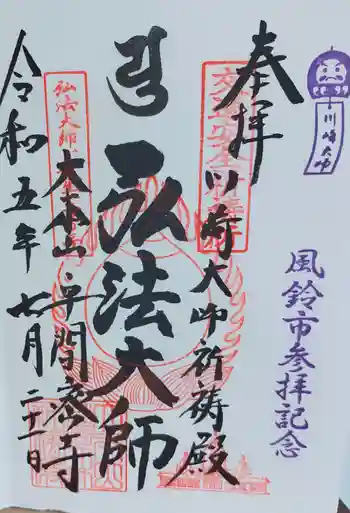 奉拝
川崎大師
風鈴市参拝記念
川崎大師祈祷殿
弘法大師
弘法大師
大本山・平間密寺
令和五年七月二十一日